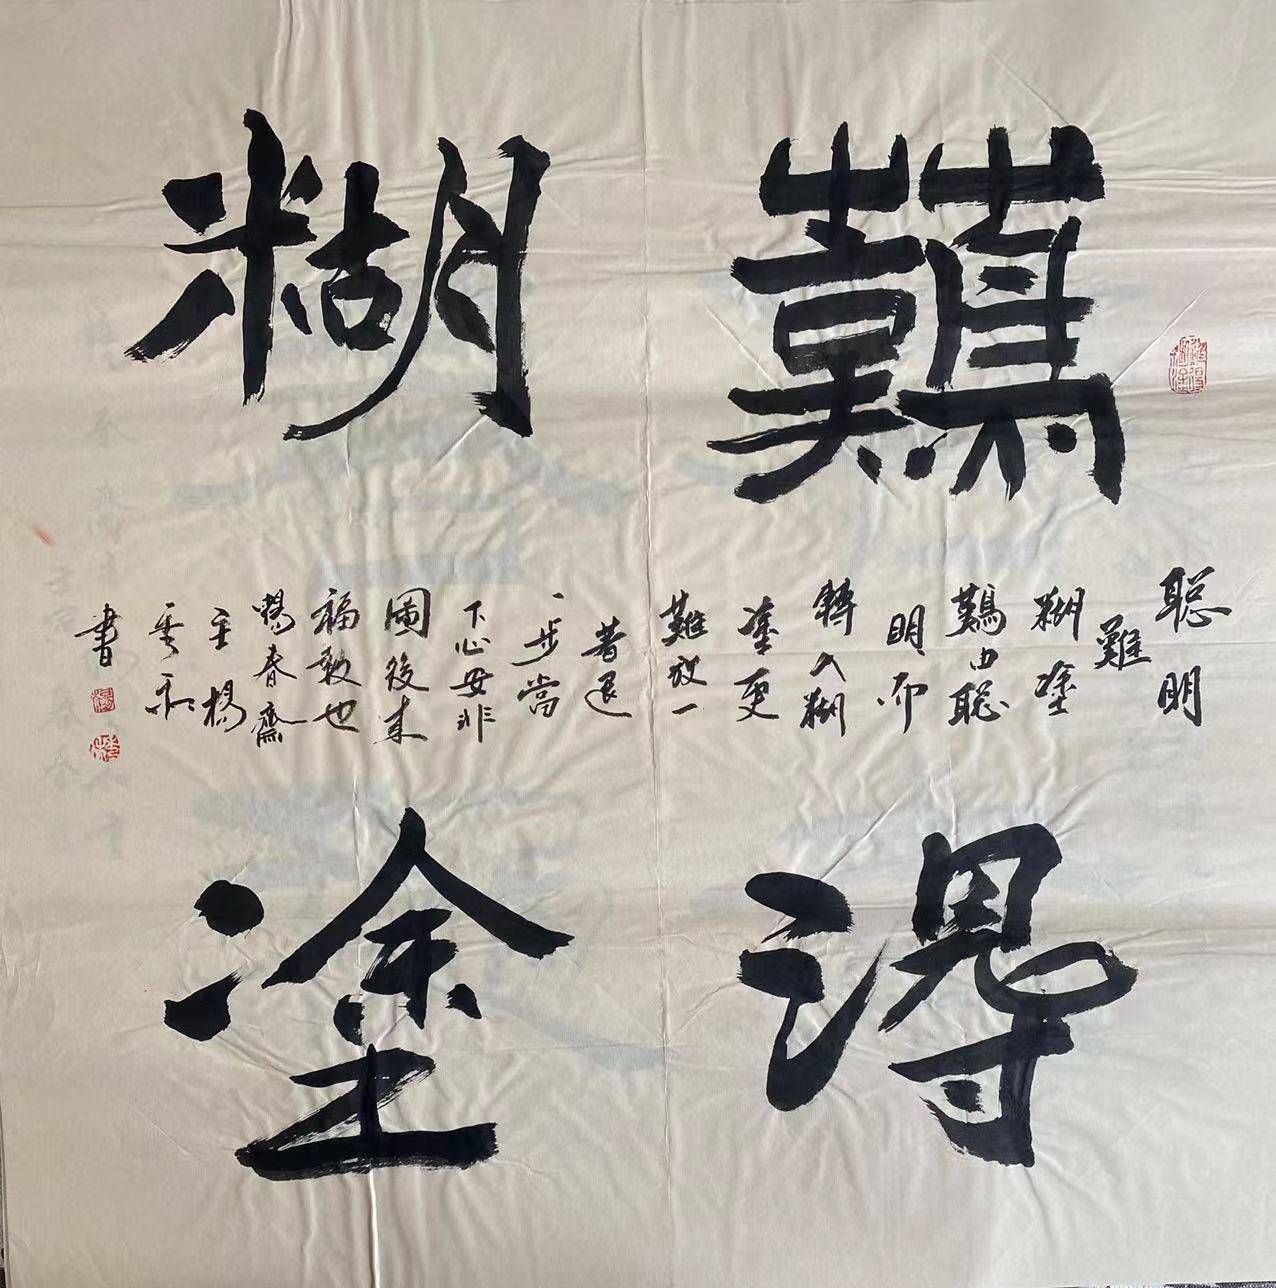 難得
糊塗
聪明
難
糊塗
難由聪
明而
轉入糊
塗更
難放一
著退
一步當
下心安非
圖後來
福報也
暢春齋
主楊
書